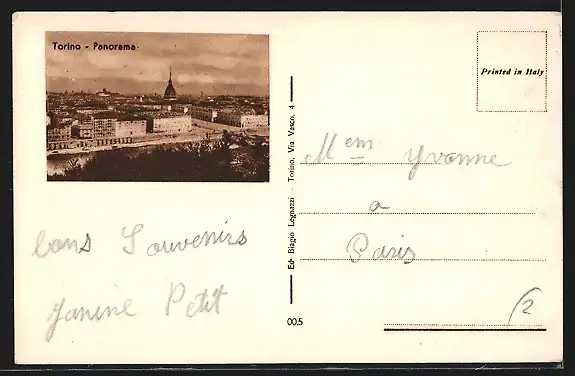 Torino - Panorama
Printed in Italy
Ed. Biagio Legnazzi - Torino, Via Vasco, 4
Mem Yvonne
a
Paris
bons Souvenirs
Janine Petit
005
(2